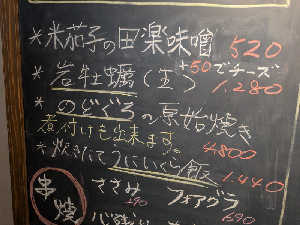 *米茄子の田楽味噌 520
+50でチーズ
*岩牡蠣(生) 1.280
*のどぐろの原始焼き
煮付けも出来ます。 4800
*炊きたてうにいくら飯 1.440
串焼
ささみ フォアグラ
190 690